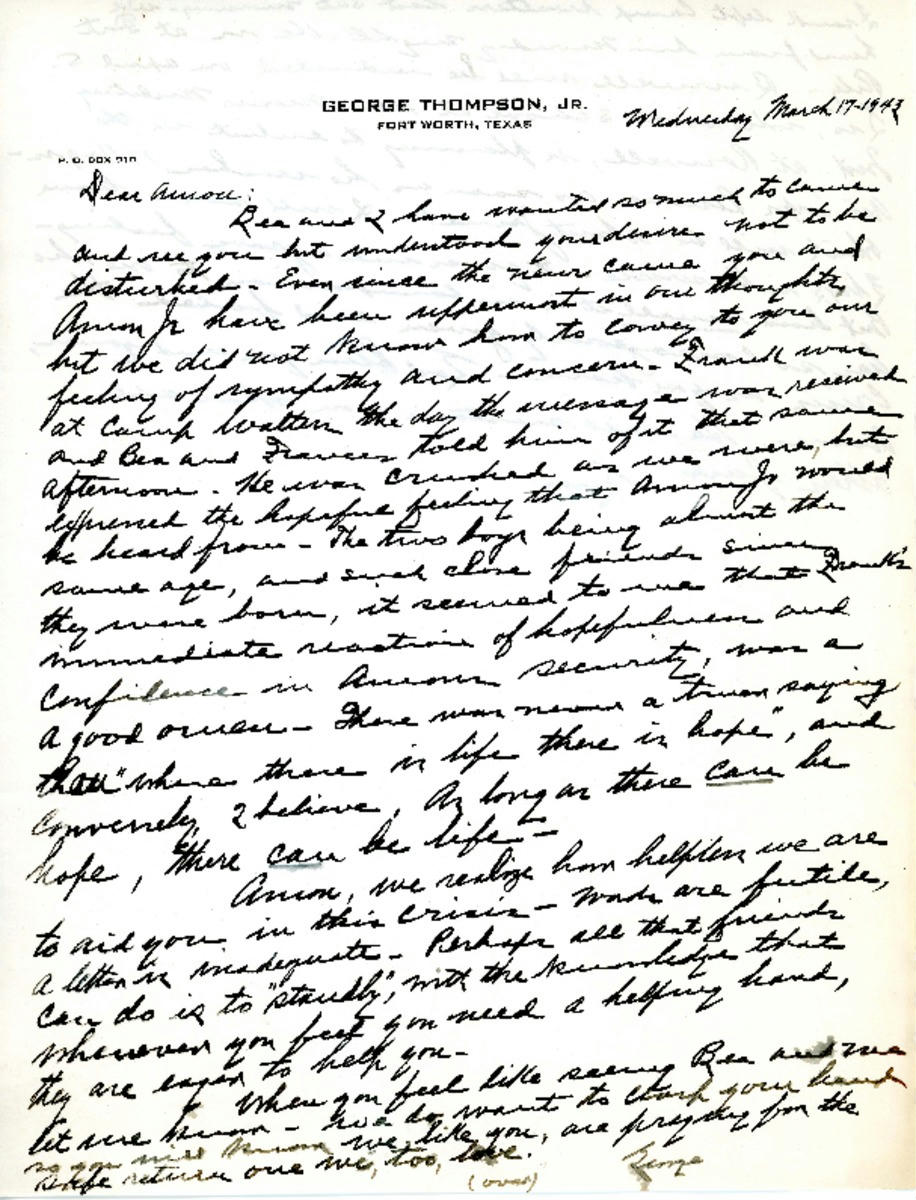 GEORGE THOMPSON, JR.
FORT WORTH, TEXAS
Wednesday March 17-1943
P. O. BOX 910
Dear Amon:
Bea and I have wanted so much to come
and see you but understood your desire not to be
disturbed - Ever since the news came you and
Amon Jr have been uppermost in our thoughts
but we did not know how to convey to you our
feeling of sympathy and concern - Frank was
at Camp Wolters the day the message was received
and Bea and Frances told him of it that same
afternoon. He was crushed as we were, but
expressed the hopeful feeling that Amon Jr would
be heard from - The two boys being almost the
same age, and such close friends since
they were born, it seemed to me that Frank's
immediate reaction of hopefulness and
confidence in Amons security, was a
a good omen - There was never a truer saying
than "where there is life there is hope", and
conversely, I believe, As long as there can be
hope, there can be life -
Amon, we realize how helpless we are
to aid you in this crisis - Words are futile,
a letter is inadequate - Perhaps all that friends
can do is to "standby", with the knowledge that
whenever you feel you need a helping hand,
they are eager to help you -
When you feel like seeing Bea and me
let me know - We do want to clasp your hand
so you will know we, like you, are praying for the
safe return one we, too, love.
George
(over)